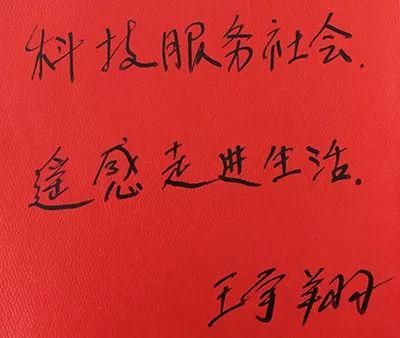 科技服务社会.
遥感走进生活.
王宇翔